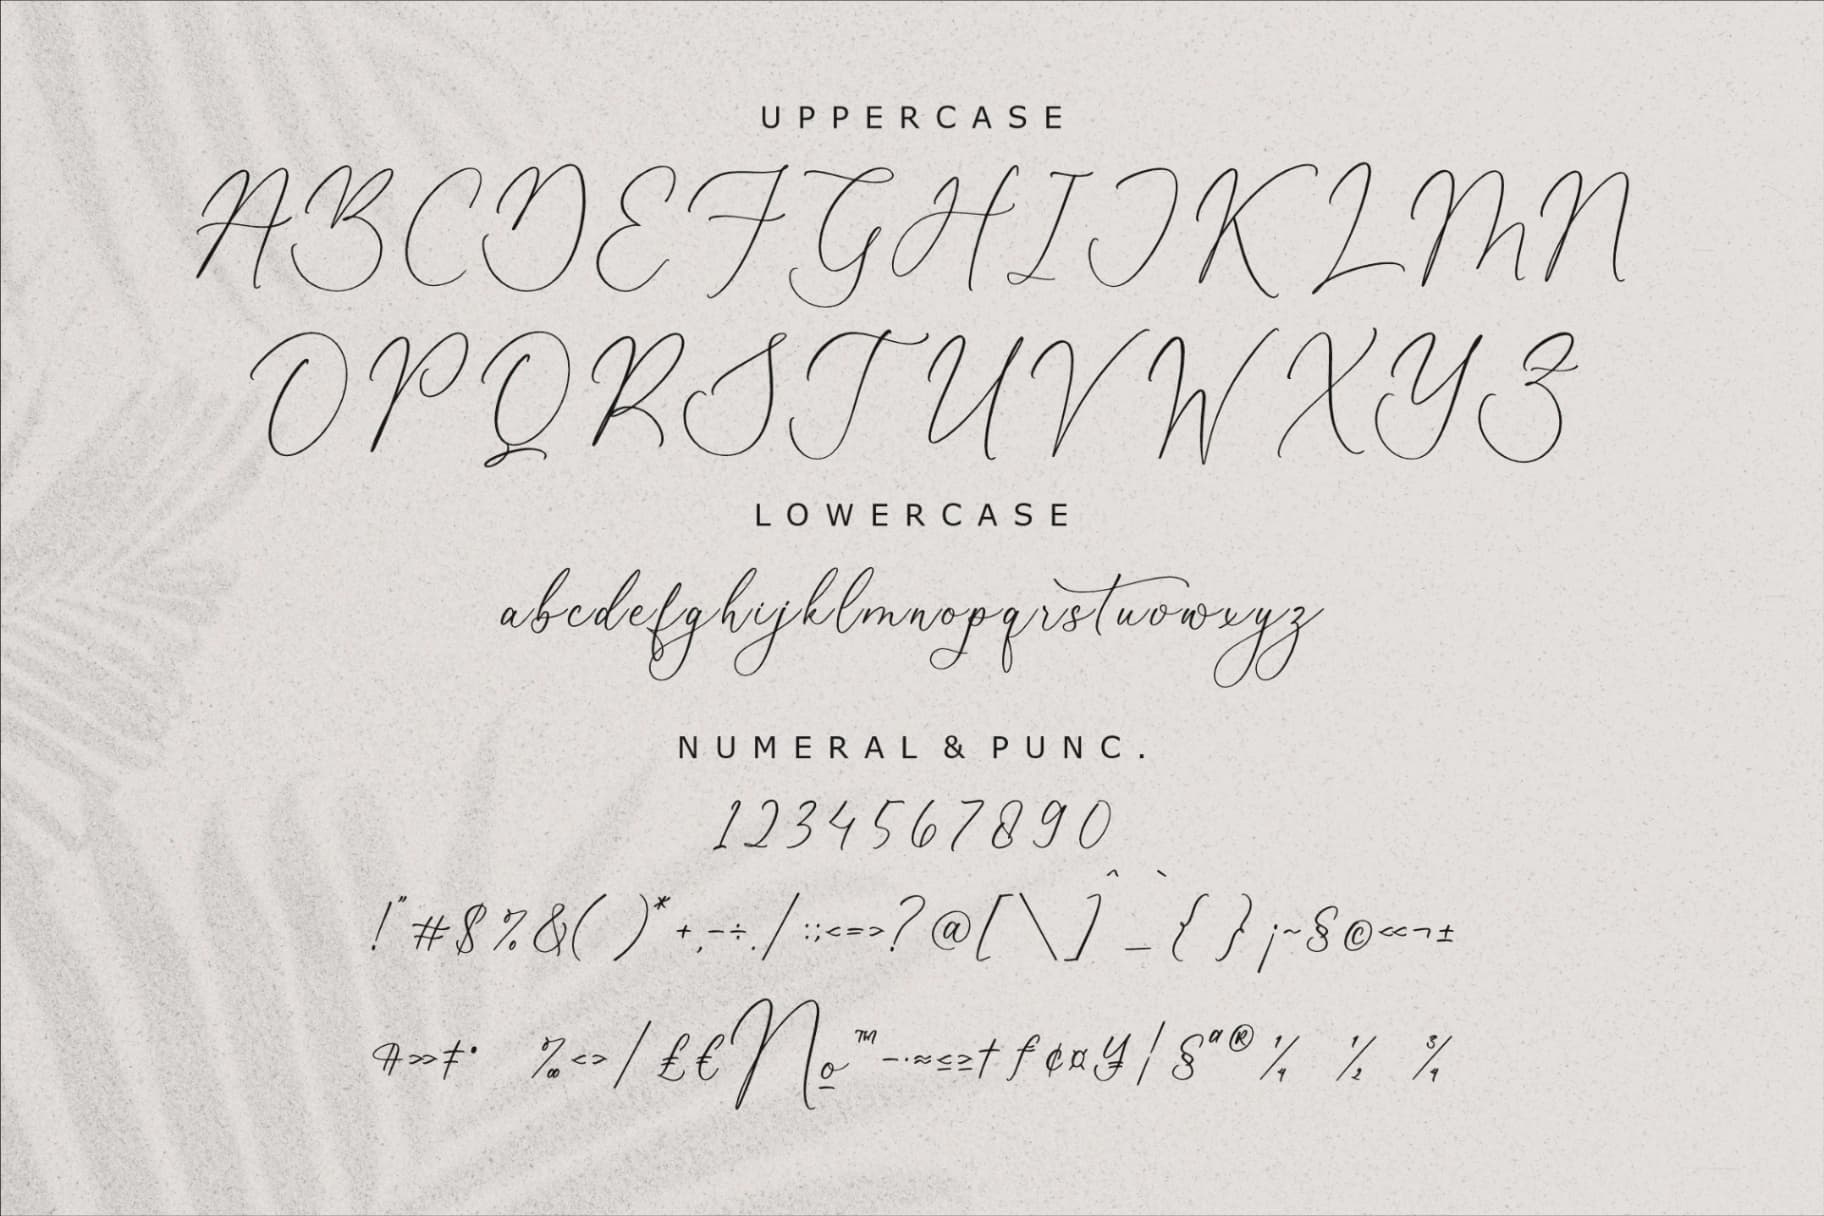 UPPERCASE
ABCDEFGHIJKLMN
OPQRSTUVWXYZ
LOWERCASE
abcdefghijklmnopqrstuvwxyz
NUMERAL & PUNC.
1234567890
!"#$%&()*+,-÷./:;<=>?@[\]^_`{}¡~§©«¬±
»‡• ‰<>/£€№™–·≈≤≥†ƒ¢¤¥¦§ª®¼ ½ ¾